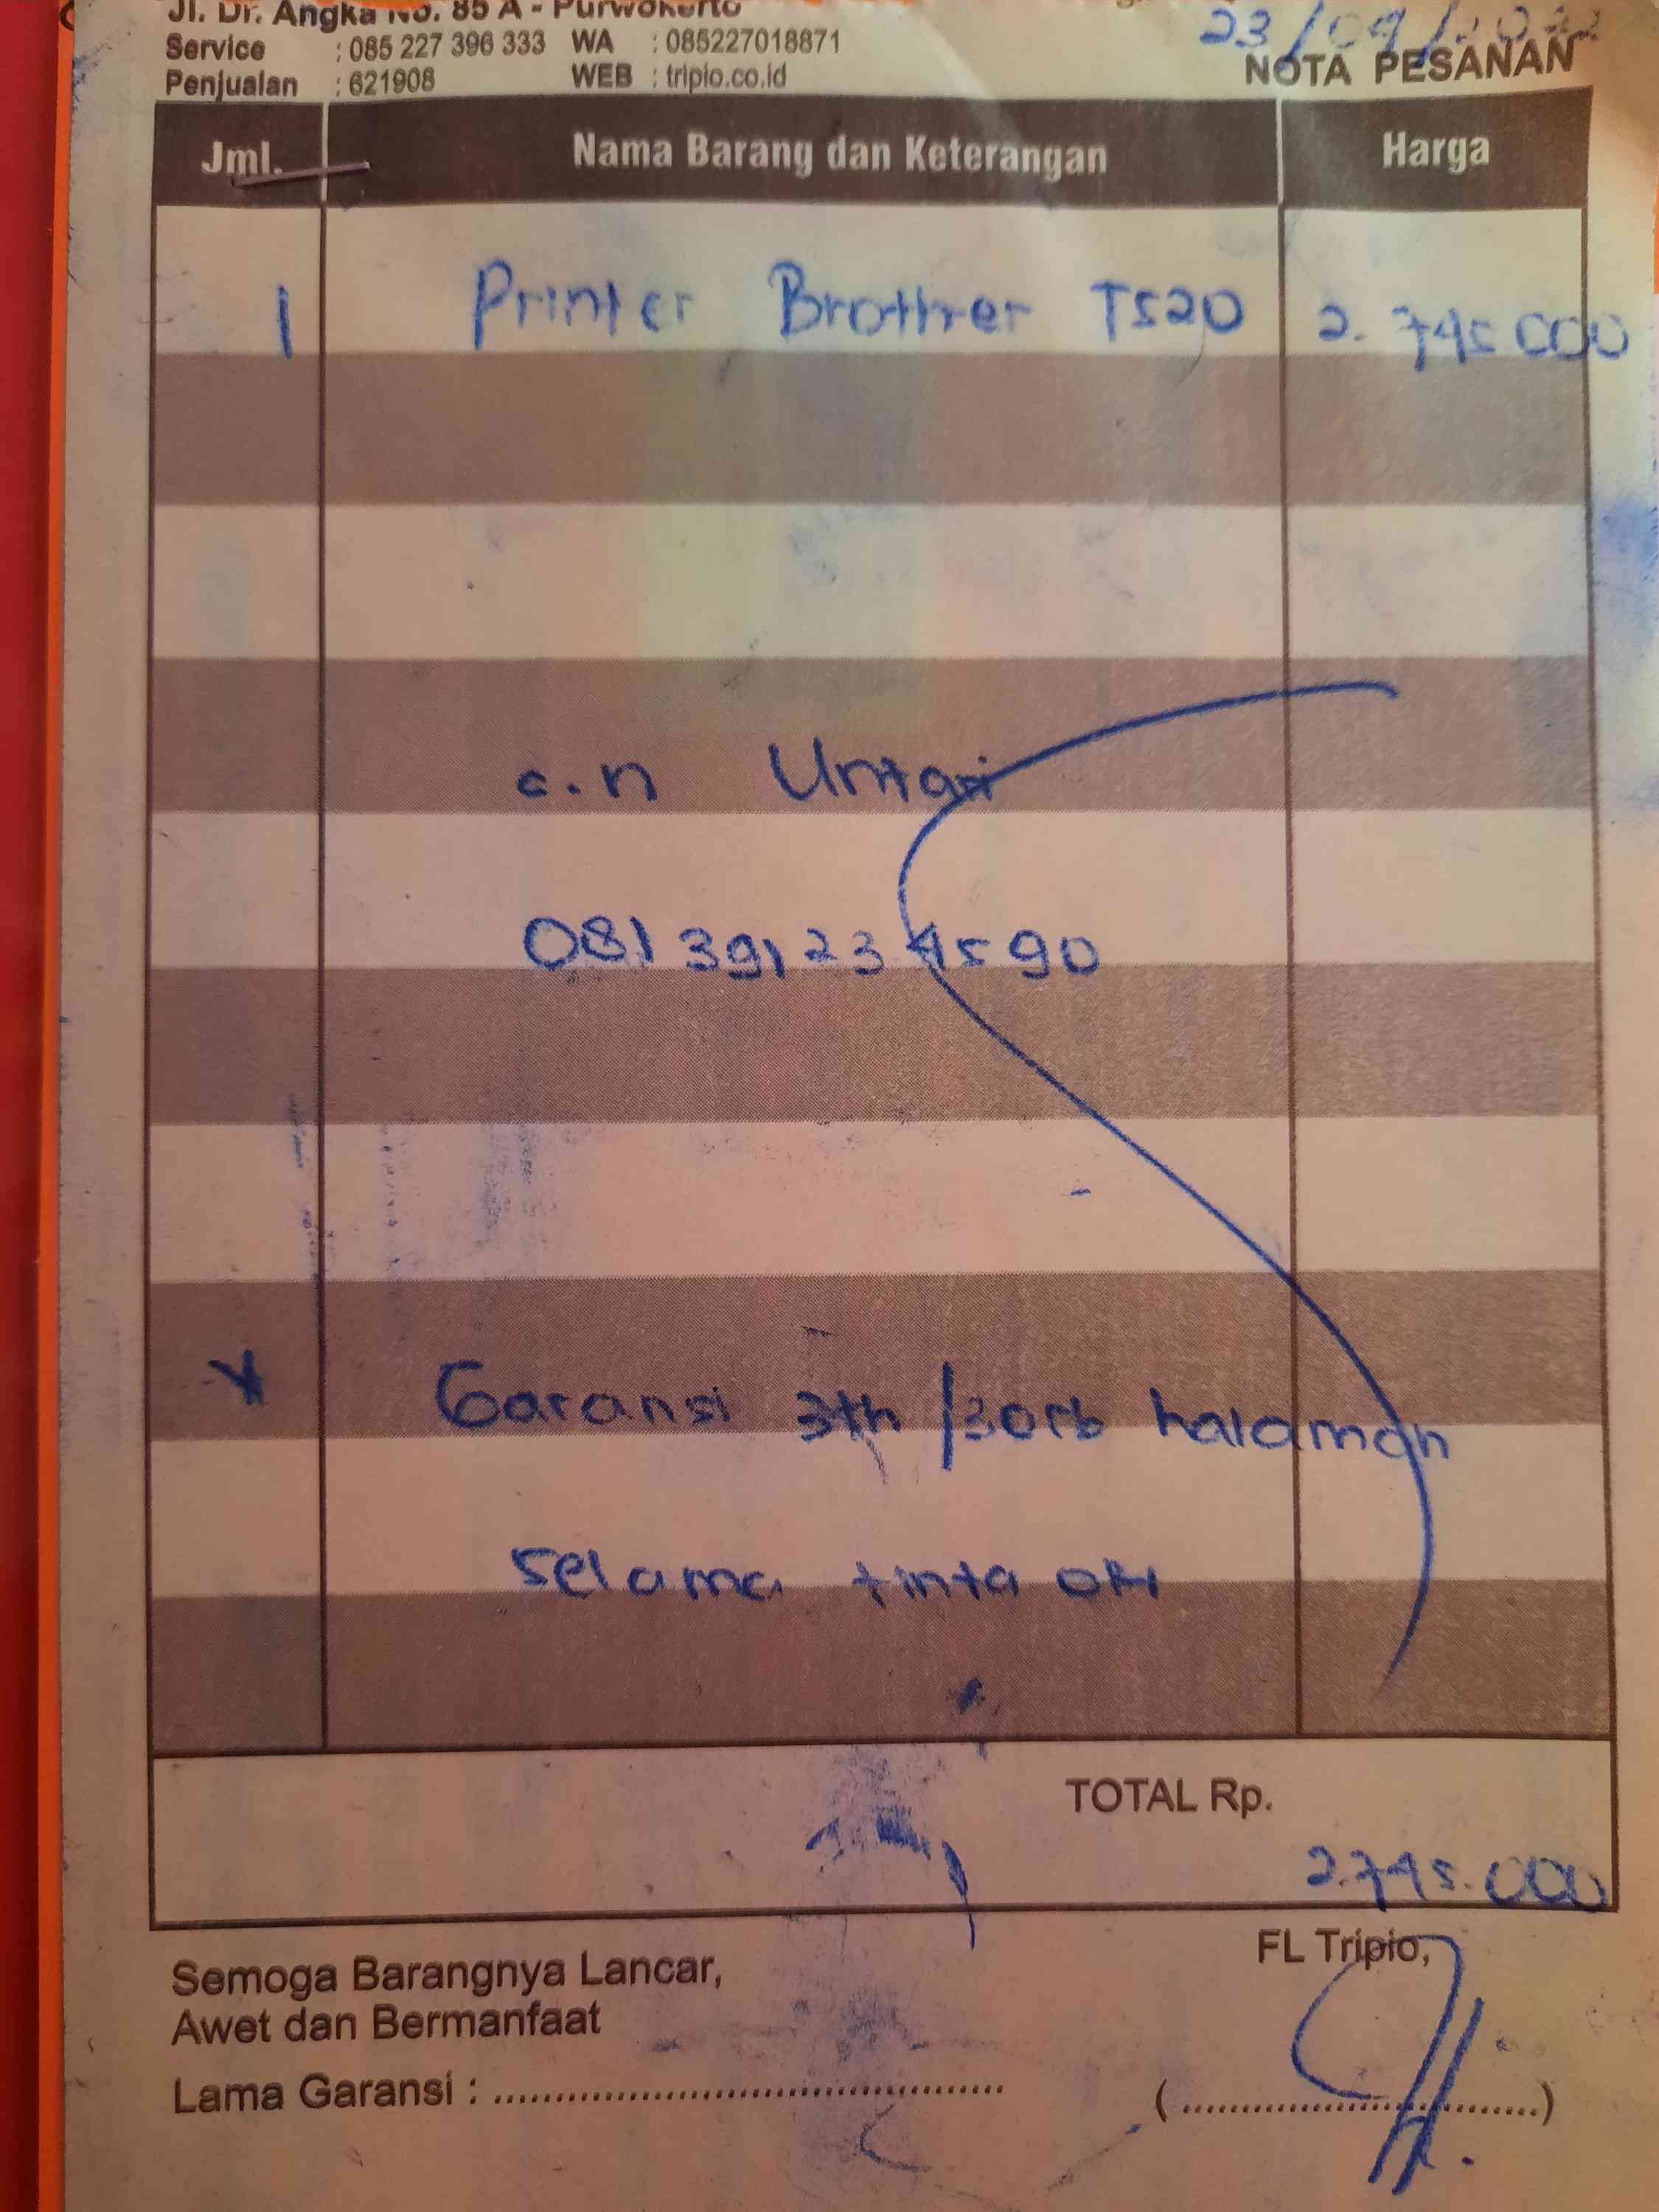 Jl. Dr. Angka No. 85 A - Purwokerto
Service : 085 227 396 333 WA : 085227018871
Penjualan : 621908 WEB : tripio.co.id
23/09/2022
NOTA PESANAN
Jml. Nama Barang dan Keterangan Harga
1 Printer Brother T520 2.745.000
a.n Untari
081 391 234590
* Garansi 3th/30rb halaman
selama tinta ori
TOTAL Rp.
2.745.000
Semoga Barangnya Lancar,
Awet dan Bermanfaat
Lama Garansi : ..........................................
FL Tripio,
(......................................)